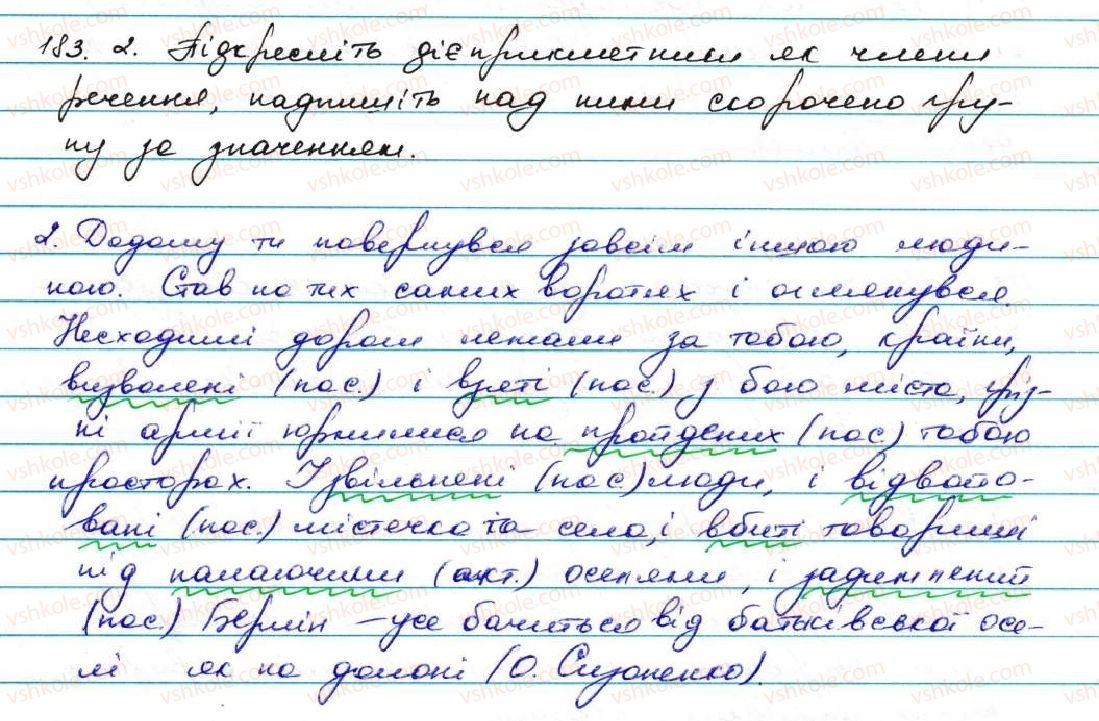 183. 2. Підкресліть дієприкметники як члени
речення, надпишіть над ними скорочено гру-
пу за значенням.
2. Додому ти повернувся зовсім іншою люди-
ною. Став на тих самих воротях і оглянувся.
Несходимі дороги лежали за тобою, країни,
визволені (пас.) і взяті (пас.) з бою міста, гріз-
ні армії юрмилися на пройдених (пас.) тобою
просторах. І звільнені (пас.) люди, і відвойо-
вані (пас.) містечка та села, і вбиті товариші
під палаючими (акт.) оселями, і задимлений
(пас.) Берлін – усе бачиться від батьківської осе-
лі як на долоні (О. Сизоненко).